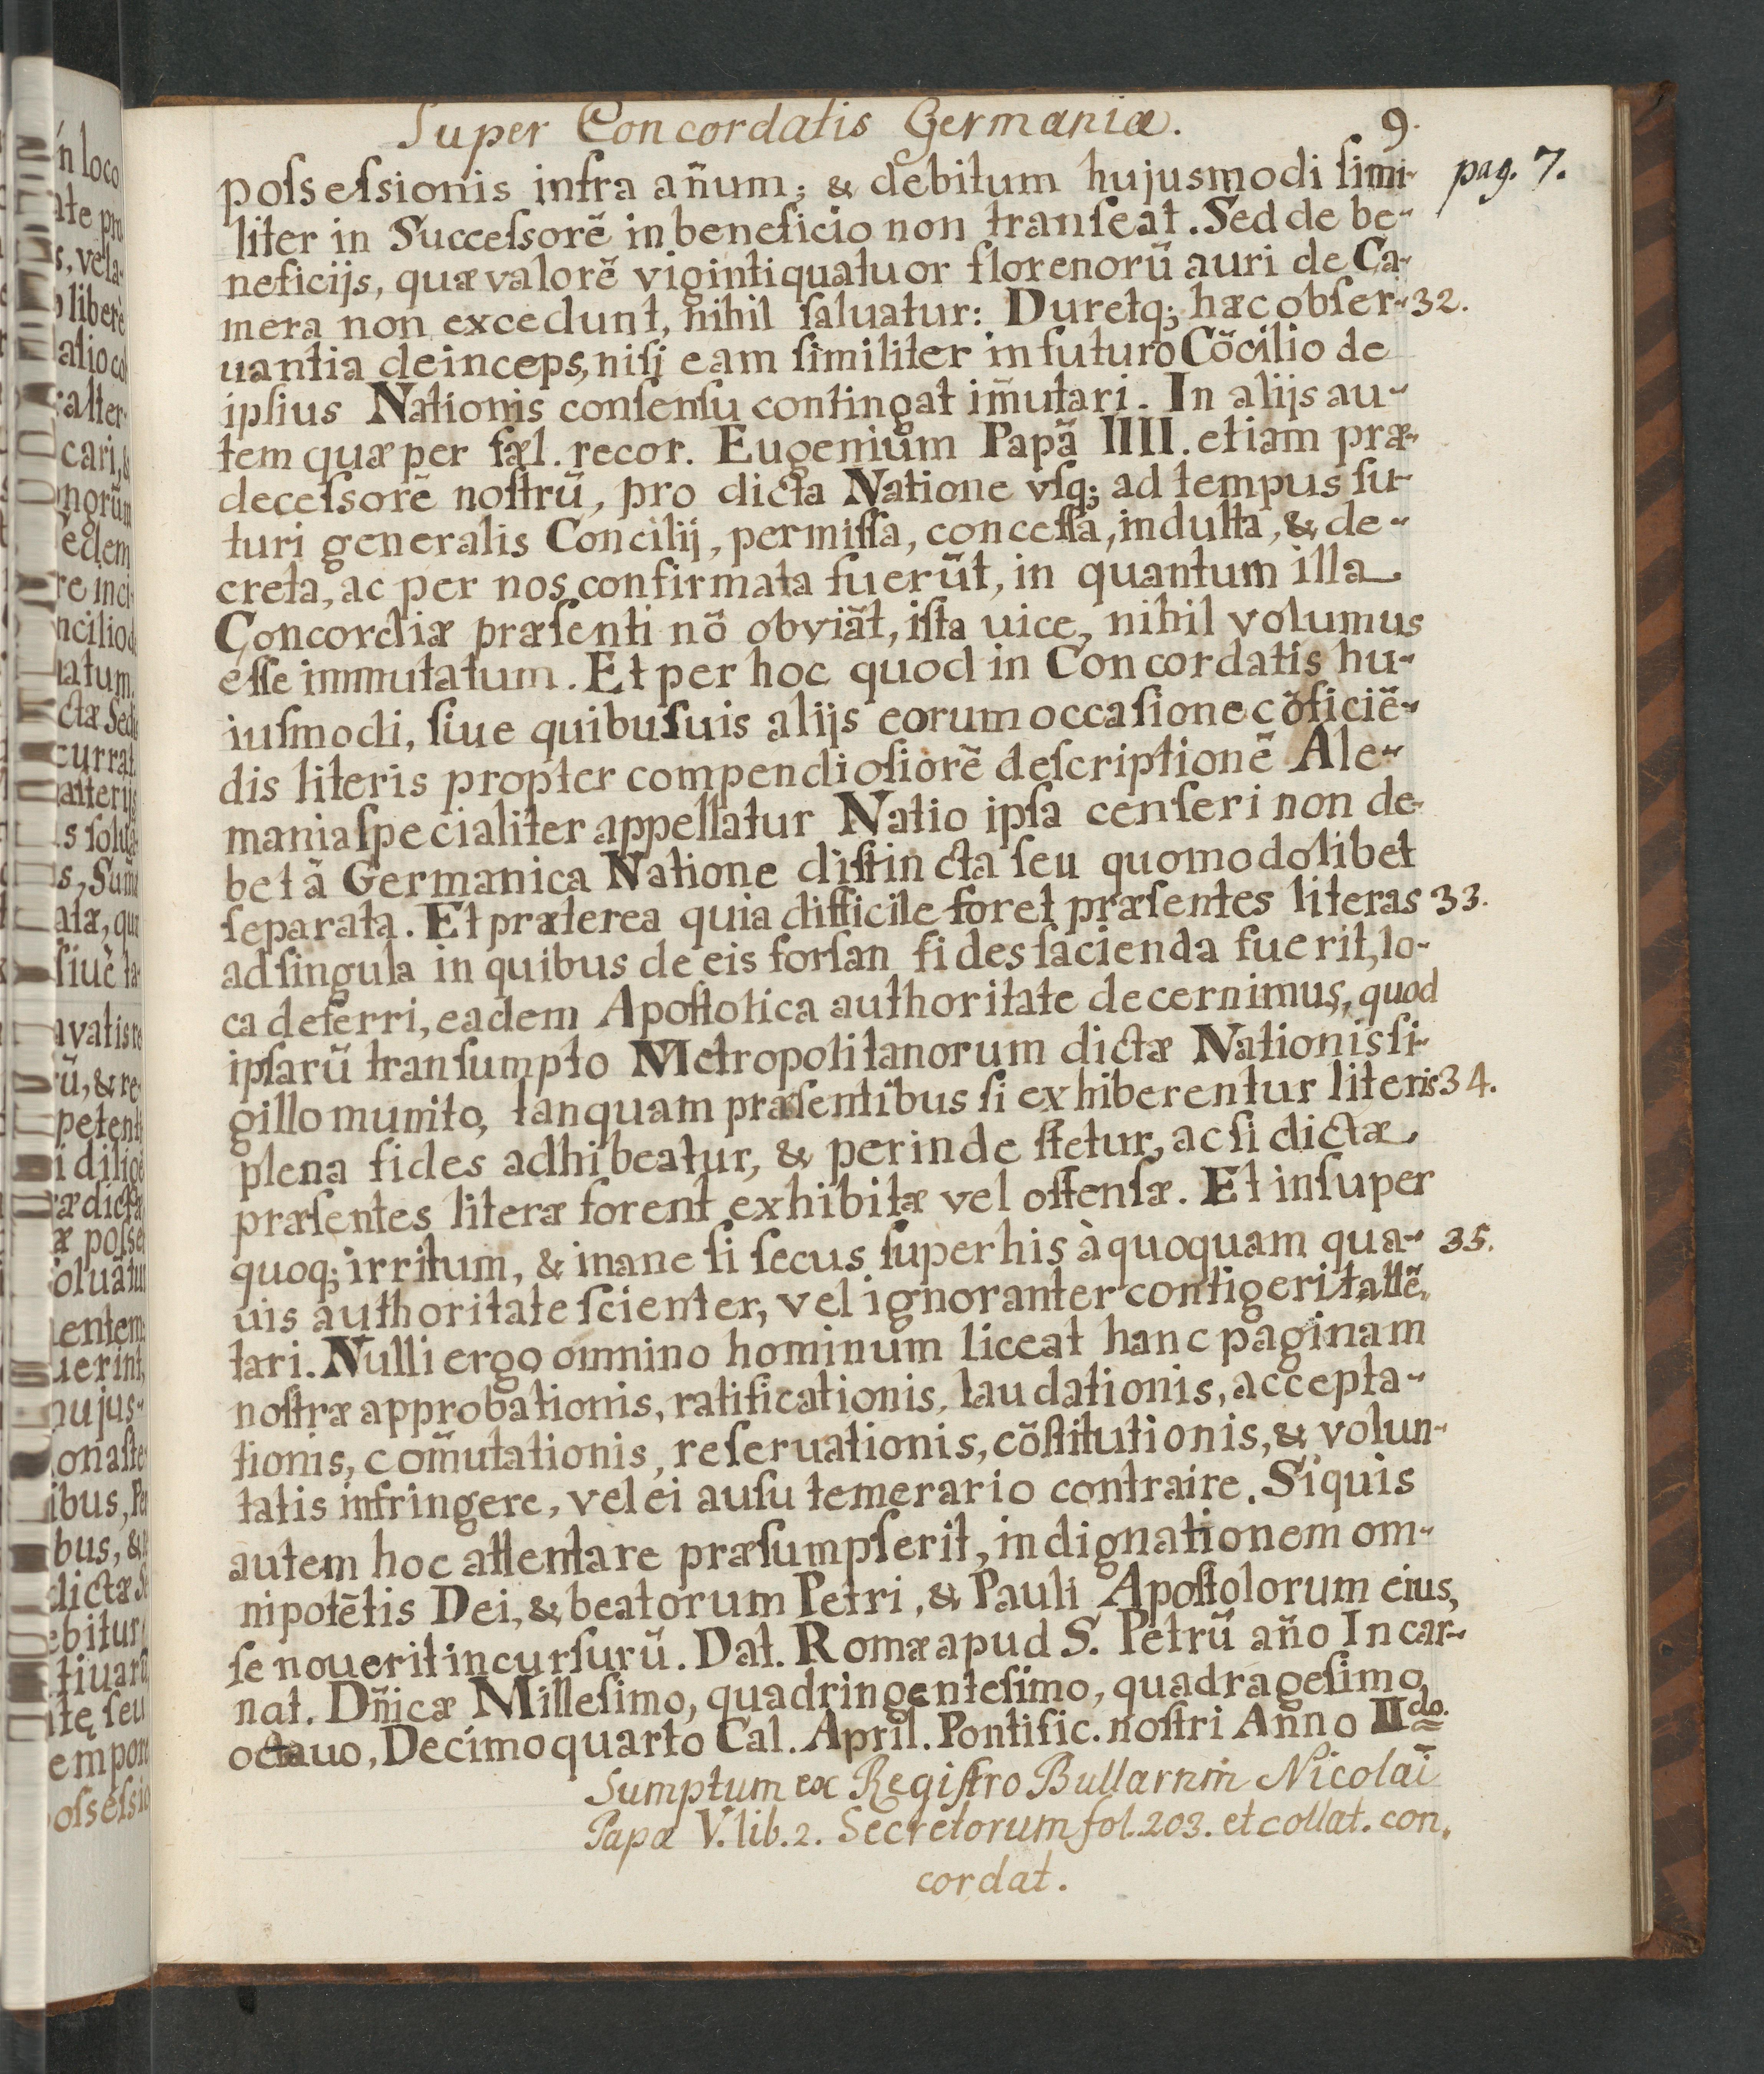 Super Concordatis Germaniæ. 9.
poſseſsionis infra añum; & debitum hujusmodi ſimi- pag. 7.
liter in Succeſsorẽ in beneficio non tranſeat. Sed de be-
neficijs, quæ valorẽ vigintiquatuor florenorũ auri de Ca-
mera non excedunt, nihil ſaluatur: Duretq; hæc obſer- 32.
uantia deinceps, niſi eam ſimiliter in futuro Cõcilio de
ipſius Nationis conſenſu contingat im̃utari. In alijs au-
tem quæ per fæl. recor. Eugenium Papã IIII. etiam præ-
deceſsorẽ noſtrũ, pro dicta Natione vſq; ad tempus fu-
turi generalis Concilij, permiſſa, conceſſa, indulta, & de-
creta, ac per nos confirmata fuerũt, in quantum illa
Concordiæ præſenti nõ obviãt, iſta uice, nihil volumus
eſſe immutatum. Et per hoc quod in Concordatis hu-
iuſmodi, ſiue quibuſuis alijs eorum occaſione cõficiẽ-
dis literis propter compendioſiorẽ deſcriptionẽ Ale-
mania ſpecialiter appellatur Natio ipſa cenſeri non de-
bet ã Germanica Natione diſtincta ſeu quomodolibet
ſeparata. Et præterea quia difficile foret præſentes literas 33.
ad ſingula in quibus de eis forſan fides facienda fuerit, lo-
ca deferri, eadem Apoſtolica authoritate decernimus, quod
ipſarũ tranſumpto Metropolitanorum dictæ Nationis ſi-
gillo munito, tanquam præſentibus ſi exhiberentur literis 34.
plena fides adhibeatur, & perinde ſtetur, ac ſi dictæ
præſentes literæ forent exhibitæ vel oſtenſæ. Et inſuper
quoq; irritum, & inane ſi ſecus ſuper his à quoquam qua- 35.
uis authoritate ſcienter, vel ignoranter contigerit attẽ-
tari. Nulli ergo omnino hominum liceat hanc paginam
noſtræ approbationis, ratificationis, laudationis, accepta-
tionis, com̃utationis, reſeruationis, cõſtitutionis, & volun-
tatis infringere, vel ei auſu temerario contraire. Siquis
autem hoc attentare præſumpſerit, indignationem om-
nipotẽtis Dei, & beatorum Petri, & Pauli Apoſtolorum eius,
ſe nouerit incurſurũ. Dat. Romæ apud S. Petrũ año Incar-
nat. Dñicæ Milleſimo, quadringenteſimo, quadrageſimo
octauo, Decimoquarto Cal. April. Pontific. noſtri Anno IIdo.
Sumptum ex Regiſtro Bullarum Nicolai
Papæ V. lib. 2. Secretorum fol. 203. et collat. con.
cordat.